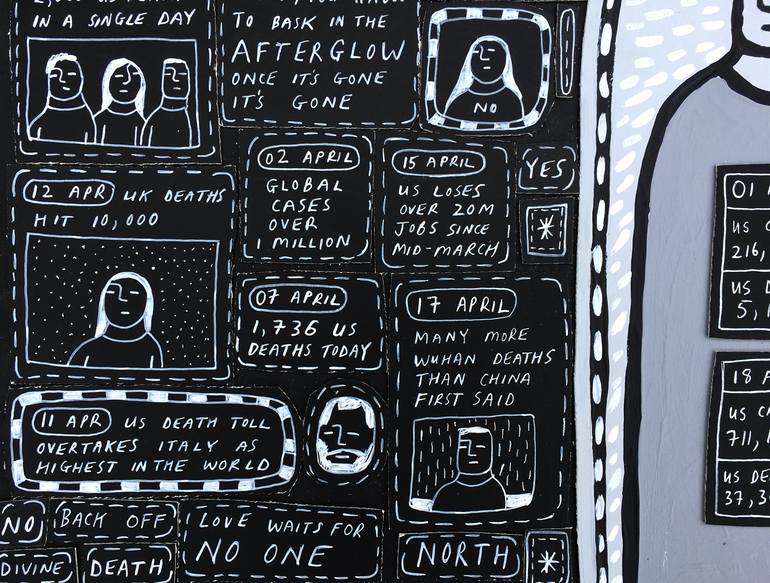 IN A SINGLE DAY
TO BASK IN THE
AFTERGLOW
ONCE IT'S GONE
IT'S GONE
NO
02 APRIL
GLOBAL
CASES
OVER
1 MILLION
15 APRIL
US LOSES
OVER 20M
JOBS SINCE
MID-MARCH
YES
*
12 APR UK DEATHS
HIT 10,000
07 APRIL
1,736 US
DEATHS TODAY
17 APRIL
MANY MORE
WUHAN DEATHS
THAN CHINA
FIRST SAID
11 APR US DEATH TOLL
OVERTAKES ITALY AS
HIGHEST IN THE WORLD
NO
BACK OFF
LOVE WAITS FOR
NO ONE
DIVINE
DEATH
NORTH
*
01
US C
216,
US D
5, 1
18 A
US CA
711,
US DE
37, 3